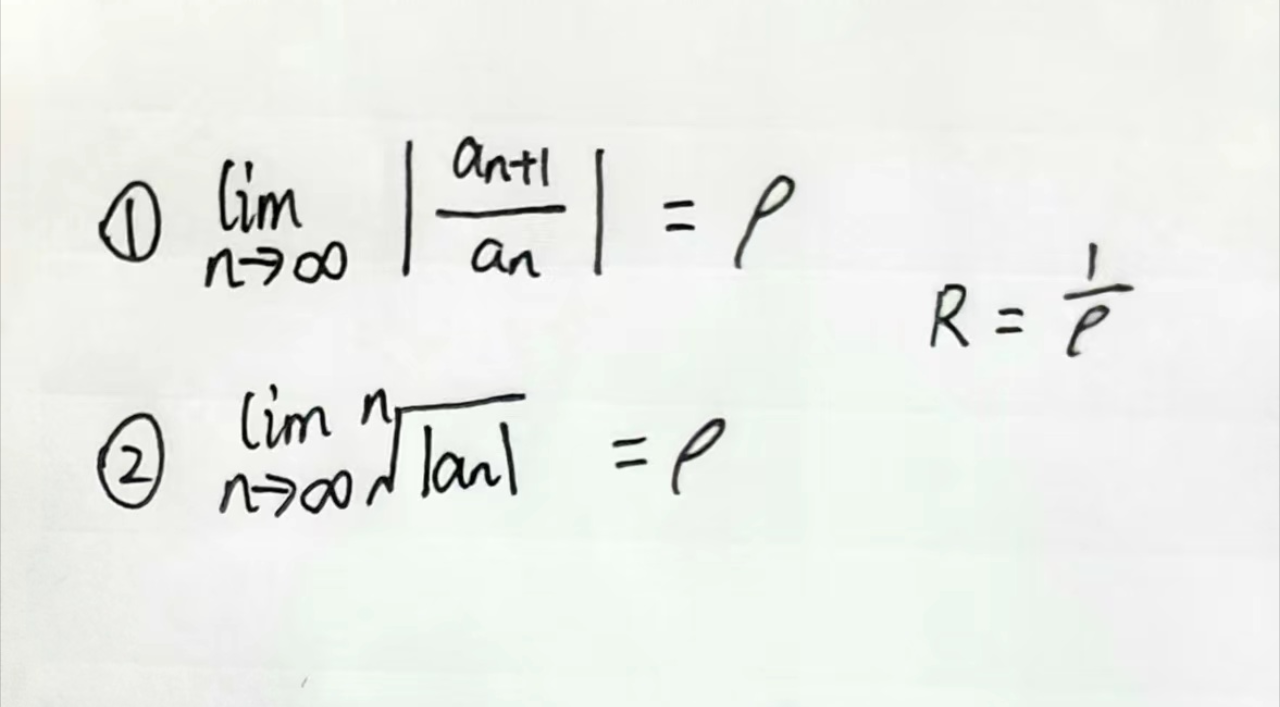 ① lim n→∞ |an+1/an| = ρ
R = 1/ρ
② lim n→∞ ⁿ√|an| = ρ